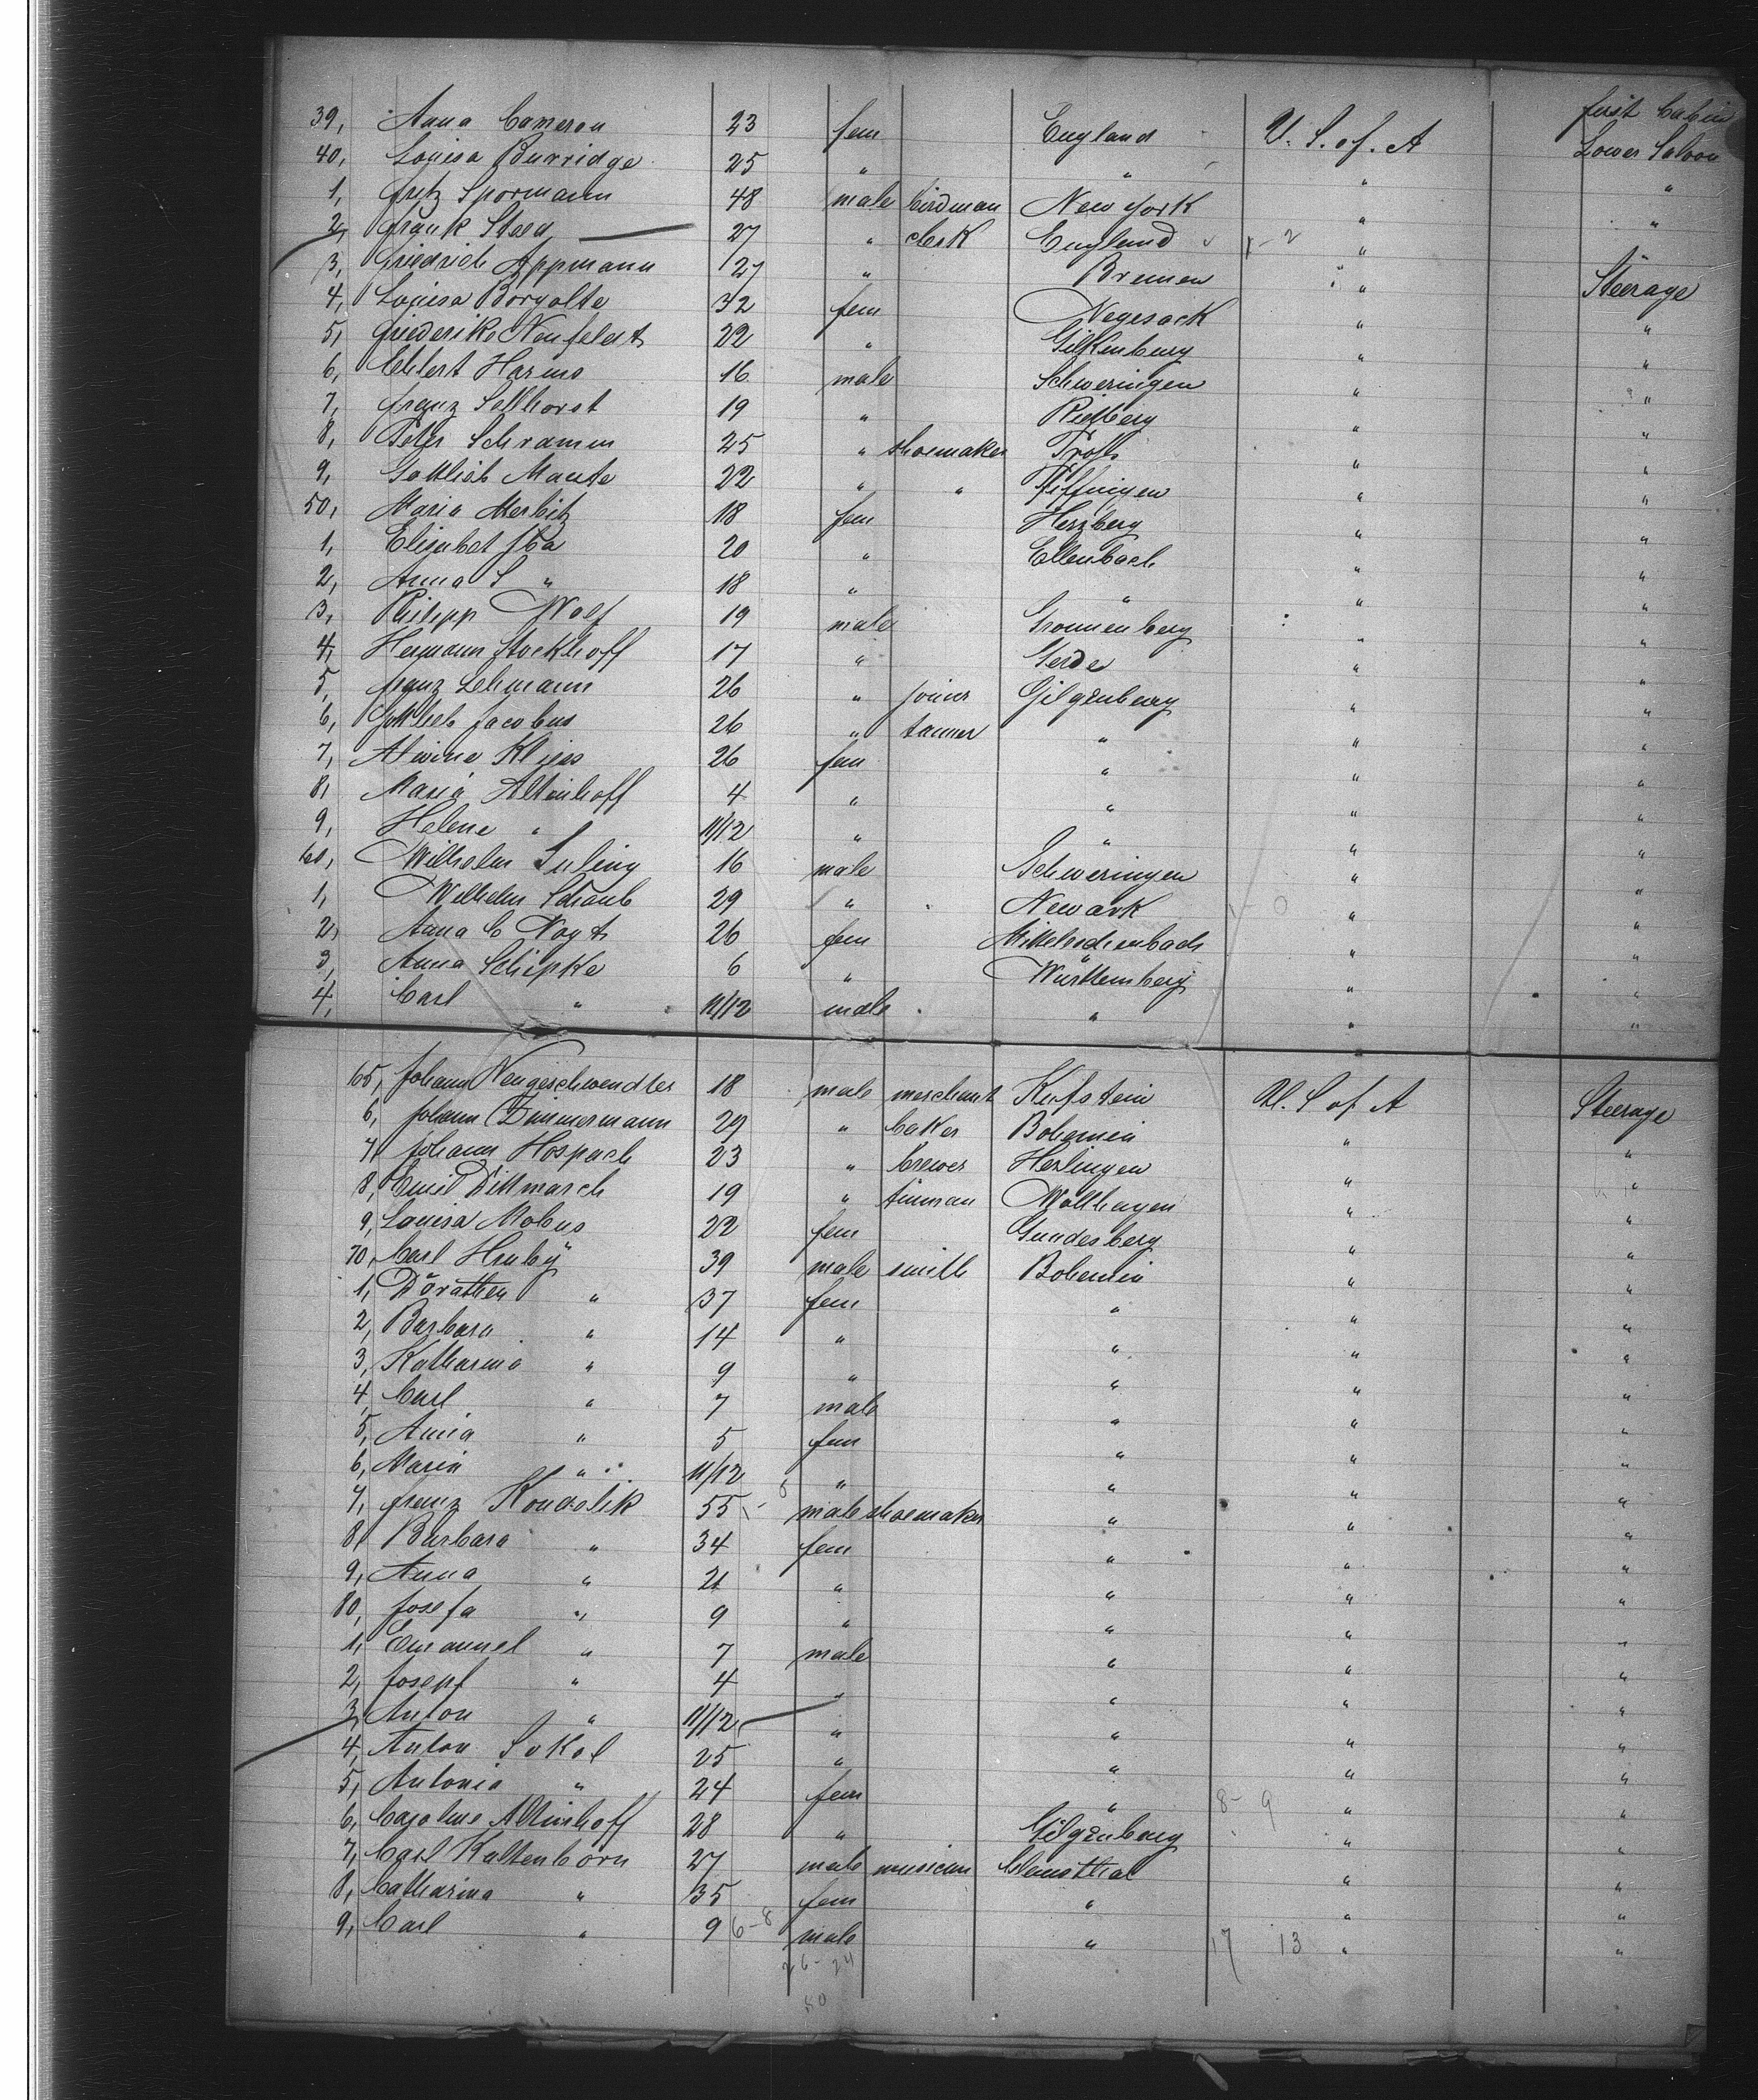 39, Anna Cameron 23 fem England U. S. of. A first Cabin
40, Louisa Burridge 25 " " " Lower Saloon
1, Fritz Spormann 48 male birdman New York " "
2, Frank Steed 27 " clerk England 1-2 " "
3, Friedrich Appmann 27 " Bremen " Steerage
4, Louisa Borgolte 32 fem Vegesack " "
5, Friederike Neufeldt 22 " Gilkenburg " "
6, Ehlert Harms 16 male Schweringen " "
7, Franz Sellhorst 19 " Rietberg " "
8, Peter Schramm 25 " shoemaker " "
9, Gottlieb Maute 22 " " " "
50, Maria Merbitz 18 fem Herzberg " "
1, Elisabet 20 " Ellenbach " "
2, Anna S " 18 " " " "
3, Philipp Wolf 19 male Gronnenberg " "
4, Hermann Stockhoff 17 " Gerde " "
5, Franz Lehmann 26 " joiner Gilgenburg " "
6, Gottlieb Jacobus 26 " tanner " " "
7, Alwine Klies 26 fem " " "
8, Maria Altenhoff 4 " " " "
9, Helene " 11/12 " " " "
60, Wilhelm Suling 16 male Schweringen " "
1, Wilhelm Schaub 29 " Newark 1-0 " "
2, Anna C Vogt 26 fem " "
3, Anna Schipke 6 " Württemberg " "
4, Carl " 11/12 male " " "
65, Johann Neugeschwendter 18 male merchant Kufstein U. S. of. A Steerage
6, Johann Zimmermann 29 " baker Bohemia " "
7, Johann Hospach 23 " brewer Herlingen " "
8, Emil Dittmarsch 19 " tinman Wolfhagen " "
9, Louisa Mobus 22 fem Gundesberg " "
70, Carl Hruby 39 male smith Bohemia " "
1, Dorathea " 37 fem " " "
2, Barbara " 14 " " " "
3, Katharina " 9 " " " "
4, Carl " 7 male " " "
5, Anna " 5 fem " " "
6, Maria " 11/12 " " " "
7, Franz Koudelik 55 male shoemaker " " "
8, Barbara " 34 fem " " "
9, Anna " 21 " " " "
80, Josefa " 9 " " " "
1, Emanuel " 7 male " " "
2, Josepf " 4 " " " "
3, Anton " 11/12 " " " "
4, Anton Sokol 25 " " " "
5, Antonia " 24 fem " 8-9 " "
6, Caroline Altenhoff 28 " Gilgenburg " "
7, Carl Kaltenborn 27 male musician Clausthal " "
8, Catharina " 35 fem " " "
9, Carl " 9 6-8 male " 17 13 " "
26-24
50